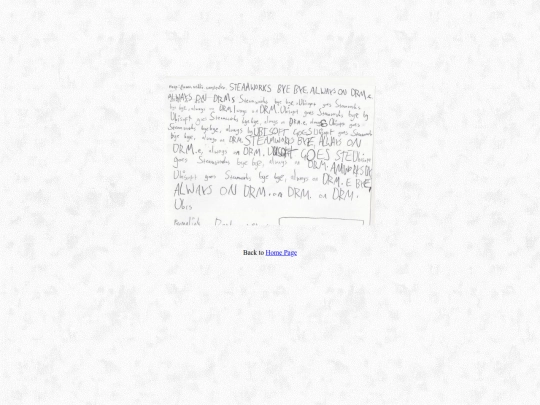 STEAMWORKS BYE BYE, ALWAYS ON DRM.
ALWAYS ON DRM Steamworks bye bye, Ubisoft goes Steamworks
bye bye, always on DRM, always on DRM. Ubisoft goes Steamworks bye by
Ubisoft goes Steamworks bye bye, always on DRM.e Ubisoft goes
Steamworks bye bye, always UBISOFT GOES Ubisoft goes Steamwork
bye bye, always on DRM. STEAMWORKS BYE, ALWAYS ON
DRM.e, always on DRM. UBISOFT GOES STE Ubisoft
goes Steamworks bye bye, always on DRM.
Ubisoft goes Steamworks bye bye, always on DRM. E BYE,
ALWAYS ON DRM. on DRM. on DRM.
Ubis
Back to Home Page